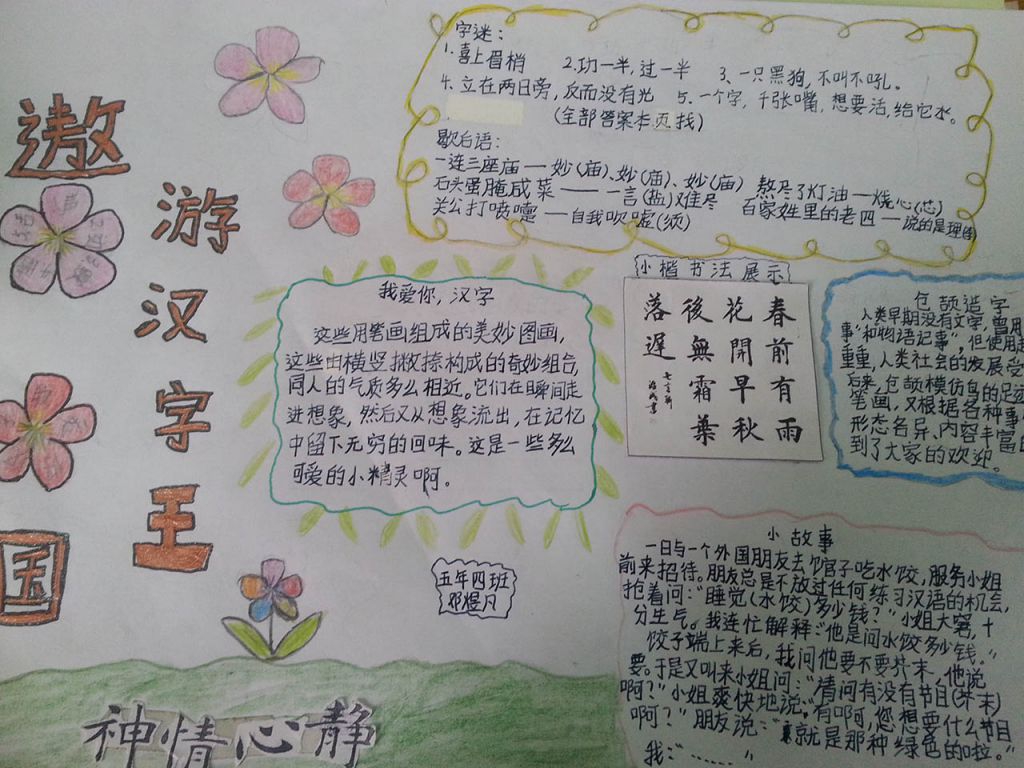 遨
游
汉
字
王
国
字迷：
1.喜上眉梢 2.功一半，过一半 3、一只黑狗，不叫不吼。
4.立在两日旁，反而没有光 5.一个字，千张嘴，想要活，给它水。
(全部答案本页找)
歇后语：
一连三座庙——妙(庙)、妙(庙)、妙(庙) 熬尽了灯油—烧心(芯)
石头蛋腌咸菜——一言(盐)难尽 百家姓里的老四——说的是理(李)
关公打喷嚏——自我吹嘘(须)
我爱你，汉字
这些用笔画组成的美妙图画，
这些由横竖撇捺构成的奇妙组合，
同人的气质多么相近。它们在瞬间走
进想象，然后又从想象流出，在记忆
中留下无穷的回味。这是一些多么
可爱的小精灵啊。
小楷书法展示
春前有雨
花開早秋
後無霜葉
落遲
仓颉造字
人类早期没有文字，曾用
事"和物语记事"，但使用起
重重，人类社会的发展受
石来，仓颉模仿鸟的足迹
笔画，又根据各种事
形态各异、内容丰富
到了大家的欢迎。
五年四班
邓煜凡
小故事
一日与一个外国朋友去饭官子吃水饺，服务小姐
前来招待。朋友总是不放过任何练习汉语的机会，
抱着问："睡觉(水饺)多少钱？"小姐大窘，十
分生气。我连忙解释："他是问水饺多少钱。"
饺子端上来后，我问他要不要芥末，他说
要。于是又叫来小姐问："请问有没有节目(芥末)
啊？"小姐爽快地说："有啊，您想要什么节目
啊？"朋友说："就是那种绿色的啦。"
我："……"
神情心静